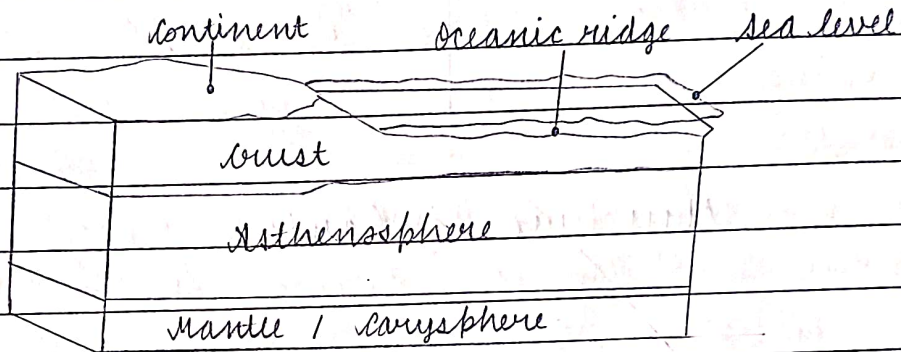 continent oceanic ridge sea level
crust
Asthenosphere
Mantle / Carysphere